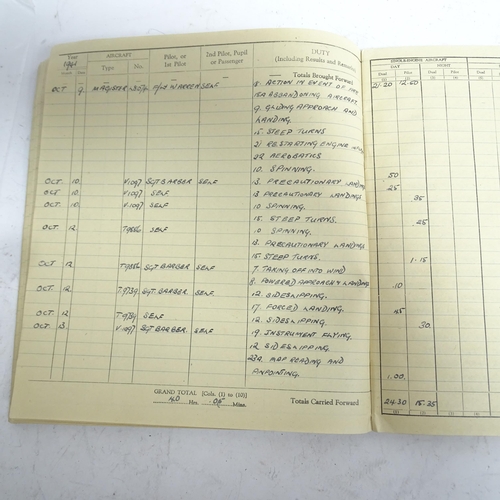 Year 1941 AIRCRAFT Pilot, or 1st Pilot 2nd Pilot, Pupil or Passenger DUTY (Including Results and Remarks)
Type No.
Totals Brought Forward
OCT 9 MAGISTER SELF 15. ACTION IN EVENT OF FIRE
15A ABANDONING AIRCRAFT
9. GLIDING APPROACH AND
LANDING.
15. STEEP TURNS
21 RESTARTING ENGINE
22 AEROBATICS
10. SPINNING.
OCT. 10. V1097 SGT BARBER SELF 13. PRECAUTIONARY LANDING
OCT. 10. V1097 SGT BARBER SELF 13 PRECAUTIONARY LANDINGS
OCT. 10. V1097 SELF 10 SPINNING.
15. STEEP TURNS.
OCT. 12 SELF 10 SPINNING.
13. PRECAUTIONARY LANDING.
15 STEEP TURNS.
OCT. 12 SGT BARBER SELF 7. TAKING OFF INTO WIND
8. POWERED APPROACH & LANDING
OCT. 12 T9739 SGT. BARBER SELF 12. SIDESLIPPING.
17. FORCED LANDING.
OCT. 12 T9739 SELF 12. SIDESLIPPING
OCT. 13. V1097 SGT BARBER SELF 19. INSTRUMENT FLYING.
12 SIDESLIPPING
23A MAP READING AND
PINPOINTING.
GRAND TOTAL [Cols. (1) to (10)]
40 Hrs. 05 Mins.
Totals Carried Forward
SINGLE-ENGINE AIRCRAFT
DAY NIGHT
Dual Pilot Dual Pilot
(1) (2) (3) (4)
21.20 12.50
.50
.25
.35
.25
1.15
.10
.45
.30.
1.00.
24.30 15.35
(1) (2) (3) (4)